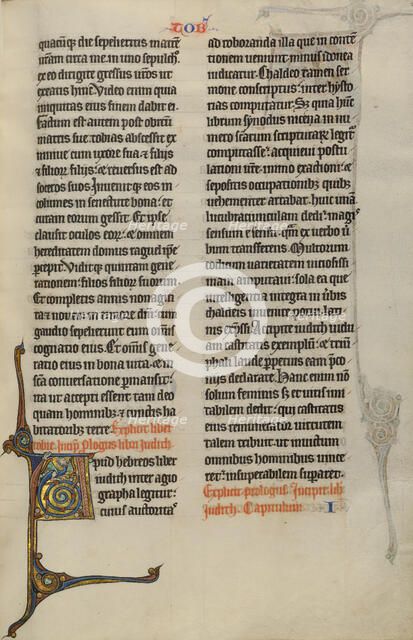 TOB
quacūq; die sepelieritis matrē
meam circa me in uno sepulchͦ.
ex eo dirigite gressus vr̄os ut
exeatis hinc. Video enim quia
iniquitas eius finem dabit ei.
Factum est autem post obitum
matris sue. tobias abscessit ex
niniue cum uxore sua ⁊ filijs
⁊ filiorꝝ filijs. ⁊ reuersus est ad
soceros suos Inuenitq; eos in
columes in senectute bona. ⁊
curam eorum gessit. Et ipse
clausit oculos eorꝝ. ⁊ omnem
hereditatem domus raguel ip̄e
percepit. Viditq; quintam gene
rationem filios filiorum suorꝝ.
Et completis annis nonagīta
⁊ nouem in timore domini cum
gaudio sepelierunt eum omīs
cognatio eius. Et omīs gene
ratio eius in bona uita. ⁊ in
sc̄a conuersatione permansit
ita ut accepti essent tam deo
quam hominibꝫ ⁊ cunctis ha
bitatoribꝫ terre Explicit liber
tobie. Incip̄ Plogus libri Judith
Apud hebreos liber
iudith inter agio
grapha legitur.
cuius auctoritas
ad roboranda illa que in conten
tionem ueniunt minus idonea
iudicatur. Chaldeo tamen ser
mone conscriptus. inter histo
rias computatur. Sꝫ quia hunc
librum synodus nicena in nu
mero sanctarum scripturarꝝ legit̄
computasse. acquieui postu
lationi ur̄e. immo exactioni. ⁊
sepositis occupationibꝫ quibꝫ
uehementer artabar. huic unam
lucubratiunculam dedi. magis
sensum e sensu. quam ex uerbo uer
bum transferens. Multorum
codicum uarietatem uitiosissi
mam amputaui. sola ea que
intelligentia integra in uerbis
chaldeis inuenire potui. lati
nis expressi. Accipite iudith uidu
am castatis exemplum. ⁊ triu̅
phali laude perpetuis eam preco
niis declarate. Hanc enim nō
solum feminis sꝫ ⁊ uiris imi
tabilem dedit. qui castitatis
eius remunerator uirtutem
talem tribuit. ut inuictum
omnibus hominibus uince
ret. insuperabilem superaret.
Explicit prologus. Incipit lib̄
Judith. Capitulum I
©
Heritage